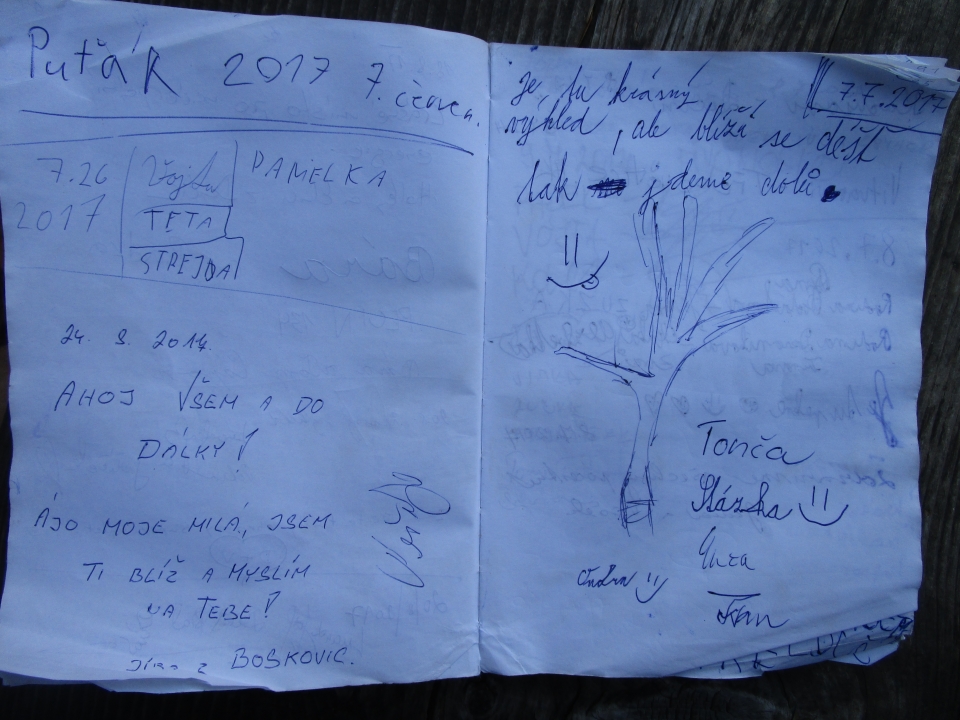 Puťák 2017 7. červen.
7.26 Vojta PAMELKA
2017 TETA
STREJDA
24. 8. 2017.
AHOJ VŠEM A DO
DÁLKY!
ÁJO MOJE MILÁ, JSEM
TI BLÍŽ A MYSLÍM
NA TEBE!
JÍRA Z BOSKOVIC.
7.7.2017
je tu krásný
výhled, ale blíží se déšť
tak jdeme dolů
Tonča
Slázka
Ondra